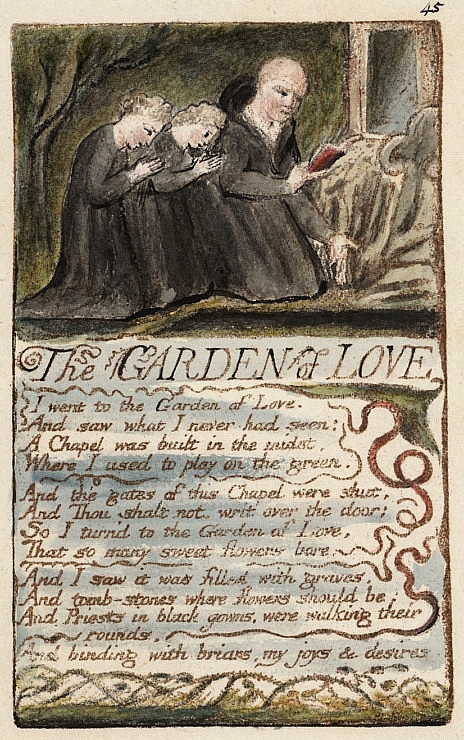 45
The GARDEN of LOVE
I went to the Garden of Love.
And saw what I never had seen:
A Chapel was built in the midst,
Where I used to play on the green.
And the gates of this Chapel were shut,
And Thou shalt not. writ over the door;
So I turn'd to the Garden of Love,
That so many sweet flowers bore.
And I saw it was filled with graves,
And tomb-stones where flowers should be:
And Priests in black gowns, were walking their
rounds,
And binding with briars, my joys & desires